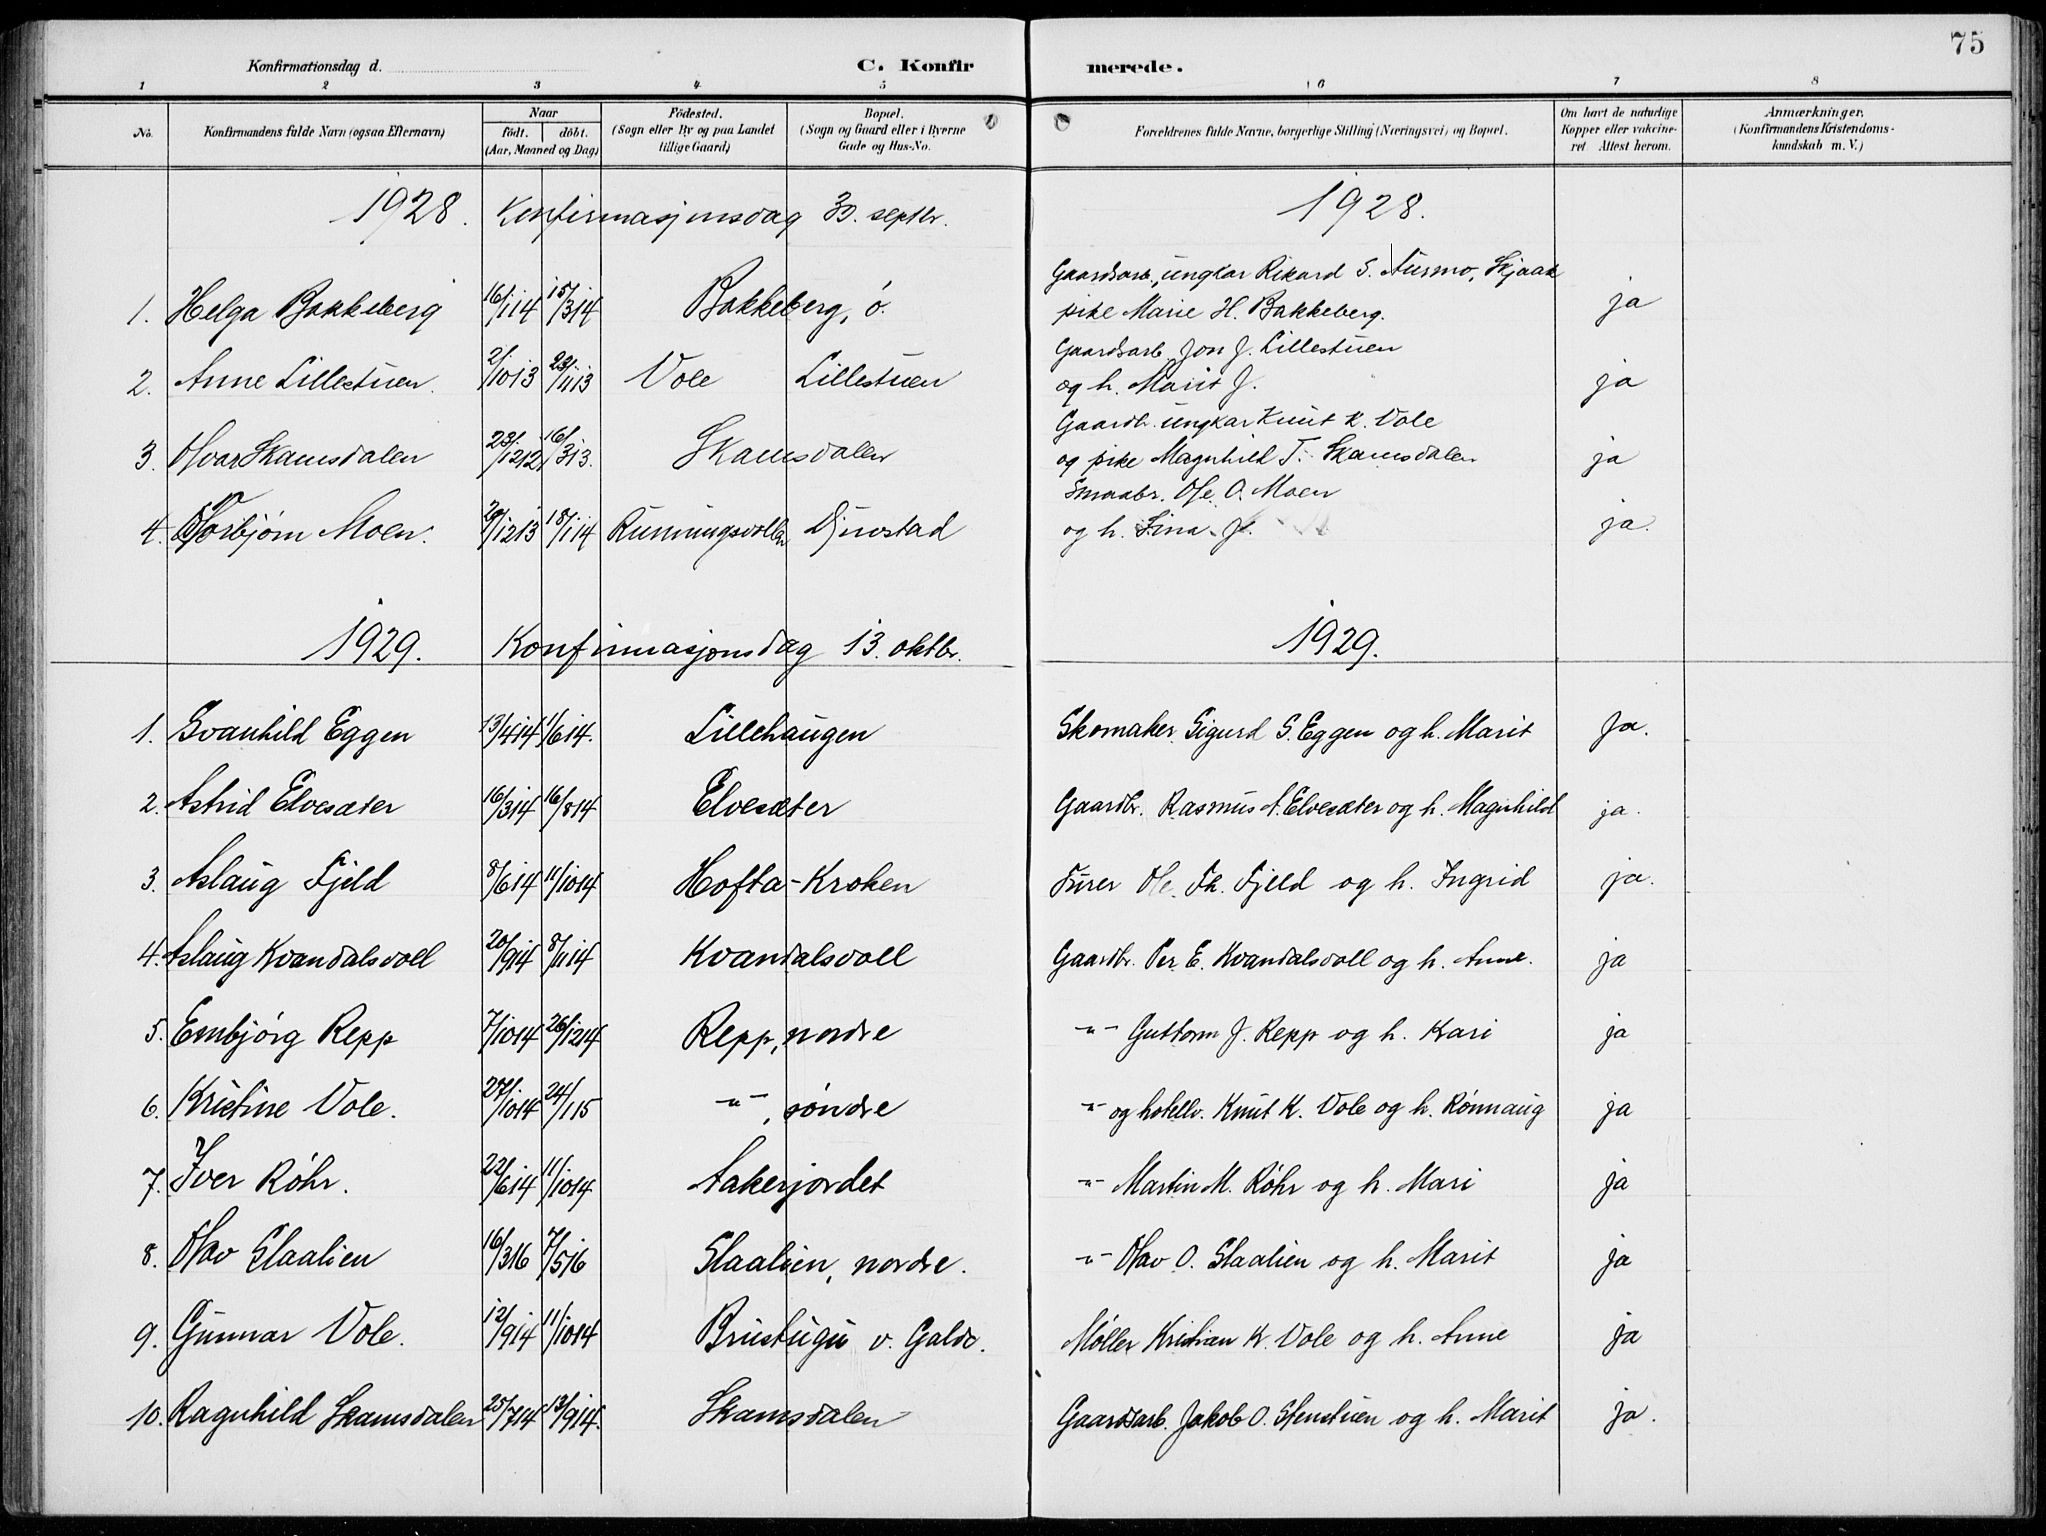 75
Konfirmationsdag d. C. Konfirmerede.
1 2 3 4 5 6 7 8
No. Konfirmandens fulde Navn (ogsaa Efternavn) Naar födt. döbt. (Aar, Maaned og Dag) Födested. (Sogn eller By og paa Landet tillige Gaard) Bopæl. (Sogn og Gaard eller i Byerne Gade og Hus-No. Forældrenes fulde Navne, borgerlige Stilling (Næringsvei) og Bopæl. Om havt de naturlige Kopper eller vakcineret Attest herom. Anmærkninger. (Konfirmandens Kristendomskundskab m. V.)
1928. Konfirmasjonsdag 30. septbr. 1928.
Gaardsarb., ungkar Rikard S. Aursmo, Skjaak
1. Helga Bakkeberg 16/1 14 15/3 14 Bakkeberg, ö. pike Marie H. Bakkeberg. ja
Gaardsarb. Jon J. Lillestuen
2. Anne Lillestuen. 2/10 13 23/11 13 Vole Lillestuen og h. Marit J. ja
Gaardbr. ungkar Knut K. Vole
3. Olvar Skamsdalen 23/12 12 16/3 13. Skamsdalen og pike Magnhild T. Skamsdalen ja
Smaabr. Ole O. Moen
4. Torbjörn Moen. 29/12 13 18/1 14 Runningsvollen Djuvstad og h. Lina J. ja.
1929. Konfirmasjonsdag 13. oktbr. 1929.
1. Svanhild Eggen 13/4 14 1/6 14. Lillehaugen Skomaker Sigurd S. Eggen og h. Marit Ja.
2. Astrid Elvesæter 16/3 14 16/8 14 Elvesæter Gaardbr. Rasmus A. Elvesæter og h. Magnhild ja.
3. Aslaug Fjeld 8/6 14 11/10 14 Hofta-Kroken Furer Ole Th. Fjeld og h. Ingrid ja.
4. Aslaug Kvandalsvoll 20/9 14 8/11 14 Kvandalsvoll Gaardbr. Per E. Kvandalsvoll og h. Anne. ja
5. Embjörg Repp 7/10 14 26/12 14 Repp, nordre -"- Guttorm J. Repp og h. Kari ja
6. Kristine Vole. 27/10 14 24/1 15 -"-, söndre -"- og hotellv. Knut K. Vole og h. Rönnaug ja
7. Iver Röhr. 22/6 14 11/10 14 Aakerjordet -"- Martin M. Röhr og h. Mari ja
8. Olav Slaalien 16/3 16 7/5 16 Slaalien, nordre. -"- Olav O. Slaalien og h. Marit ja
9. Gunnar Vole. 12/9 14 11/10 14 Brustugu v. Galde. Möller Kristian K. Vole og h. Anne ja
10. Ragnhild Skamsdalen 25/7 14 13/9 14. Skamsdalen Gaardsarb. Jakob O. Stenstuen og h. Marit ja.